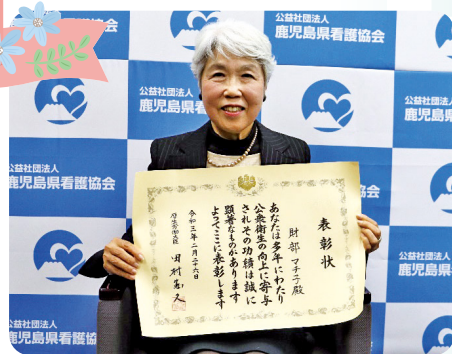 公益社団法人
鹿児島県看護協会
公益社団法人
鹿児島県看護協会
公益社団法人
鹿児島県看護協会
公益社団法人
鹿児島県看護協会
公益社団法人
鹿児島県看護協会
公益社団法人
鹿児島県看護協会
公益社団法人
表彰状
財部 マチ子殿
あなたは多年にわたり
公衆衛生の向上に寄与
されその功績は誠に
顕著なものがあります
よってここに表彰します
令和三年二月二十六日
厚生労働大臣 田村憲久